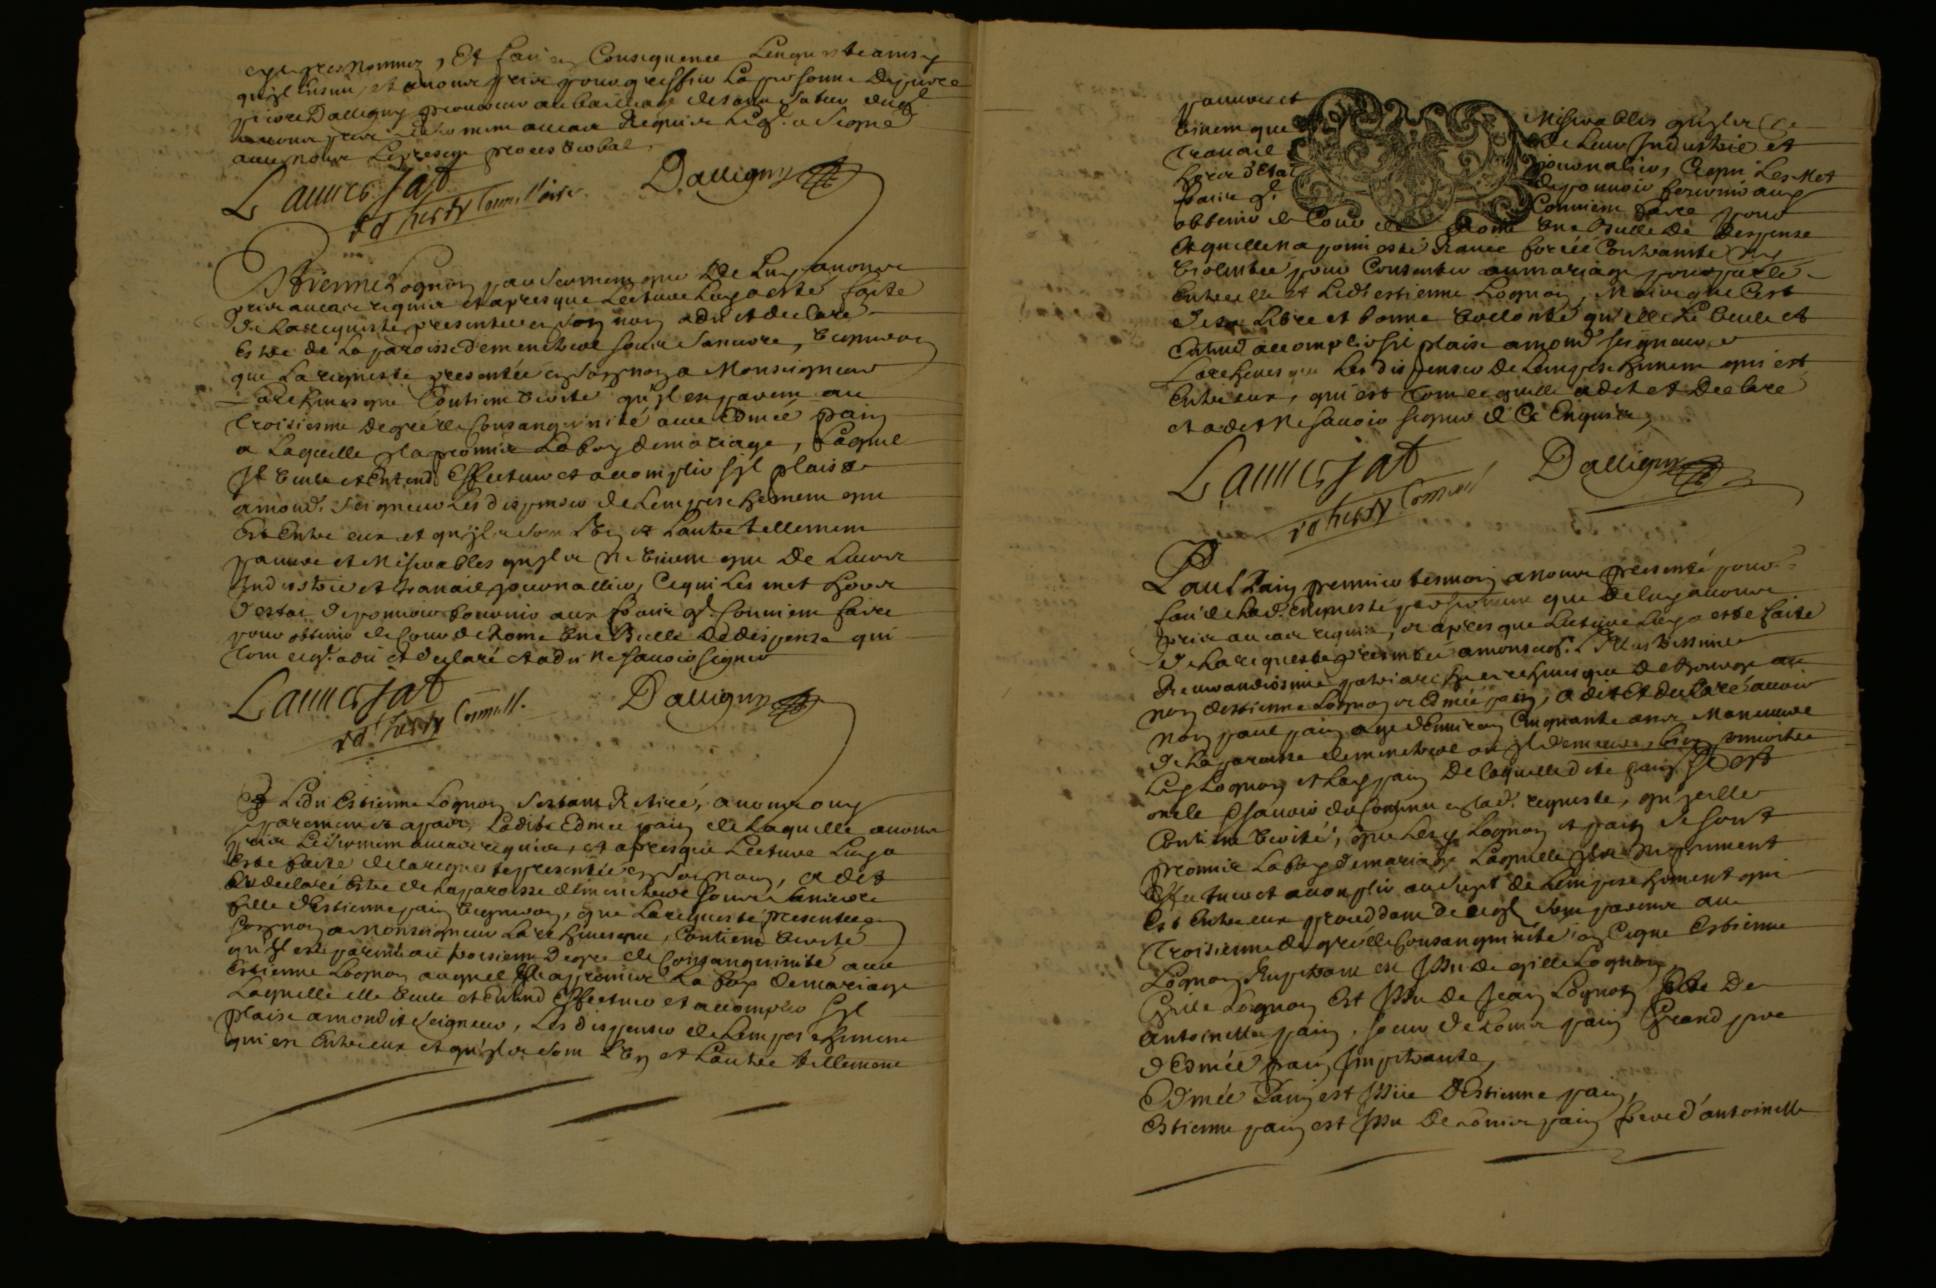 cy apres nommez, Et faire en Consequence Lenqueste ainsy
quil ensuit, et auons pris pour greffier La personne de
pierre Dalligny procureur au bailliage duquel
auons pris le serment au cas Requis Lequel a signé
auec nous Le present proces verbal.
Lauuerjat
Dalligny
Estienne Lognon par serment que De Luy auons
pris au cas requis et apres que Lecture Luy a esté faite
De La requeste presentée en son nom a dit et declaré
Estre de La paroisse de menetreol sous Sancerre,
que La requeste presentée en son nom a Monseigneur
Larcheuesque Contient verité quil est parent au
Troisiesme degré de Consanguinité auec Edmée pain
a Laquelle il a promis La foy de mariage, Laquelle
Il veule et Entend Effectuer et accomplir sil plaist
a mond. Seigneur Les dispenser de Lempeschement qui
Est Entre eux et quils sont L'un et Lautre tellement
pauures et Miserables quils ne viuent que De Leurs
Industrie et trauail journallier, Ce qui Les met hors
d'estat de pouuoir fournir aux frais quil Conuient faire
pour obtenir de Cour de Rome Une Bulle De dispense qui
sont ce quil a dit et declaré et a dit ne sauoir signer
Lauuerjat
Dalligny
Ledit Estienne Lognon s'estant Retiré, auons
a part Ladite Edmée pain de Laquelle auons
pris Le serment au cas requis, et apres que Lecture Luy a
Esté faite de la requeste presentée en son nom, a dit
Et declaré Estre de La paroisse de menetreol sous Sancerre
fille d'Estienne pain vigneron, que La requeste presentée en
son nom a Monseigneur Larcheuesque, Contient verité
quil est parent au troisieme Degré de Consanguinité auec
Estienne Lognon auquel Elle a promis La foy de mariage
Laquelle elle veule et Entend Effectuer et accomplir sil
plaise a mondit Seigneur, Les dispenser de Lempeschement
qui est Entre eux et quils sont L'un et Lautre tellement
pauures et Miserables quils ne
viuent que De Leur Industrie et
Trauail journalier, Ce qui Les Met
hors d'Etat De pouuoir fournir aux
frais quil Conuient faire pour
obtenir de Cour de Rome Une Bulle De Dispense
Et quelle na point esté Rauie forcée Contrainte Ny
violentée pour Consentir au mariage pour parlé
Entre elle et Ledit estienne Lognon, Mais que C'est
de sa Libre et bonne volonté qu'elle Le veule et
Entend accomplir sil plaise a mond. seigneur
Larcheuesque Les dispenser de Lempeschement qui est
Entre eux, qui est tout ce quelle a dit et Declaré
et a dit Ne sauoir signer de Ce Enquise,
Lauuerjat
Dalligny
Paul Pain premier tesmoin a nous presenté pour
fait de Lad. Enqueste par serment que De luy auons
pris au cas requis, et apres que Lecture Luy a esté faite
de La requeste presentée a monseig. L'Illustrissime
Reuerendissime patriarche archeuesque de Bourges au
nom d'Estienne Lognon et Edmée pain, a dit et declaré auoir
Nom paul pain agé d'enuiron Cinquante ans Manœuure
de La paroisse de menetreol où il demeure, bien connoitre
Lesd. Lognon et Lad. pain De laquelle dite pain Il est
oncle et sauoir du Contenu en lad. requeste, qu'elle
Contient verité, que Lesd. Lognon et pain se sont
promis La foy de mariage Laquelle ils ne peuuent
Effectuer et accomplir au sujet de Lempeschement qui
Est Entre eux procedant de ce quils sont parens au
Troisieme degré de Consanguinité en Ligne Estienne
Lognon Impetrant est Issu de gille Lognon
Gille Lognon Est Issu de Jean Lognon Et De
Antoinette pain, soeur de Louis pain Grand pere
d'Edmée pain Impetrante,
Edmée Pain est Issue d'Estienne pain,
Estienne pain est Issu de Louis pain frere d'antoinette